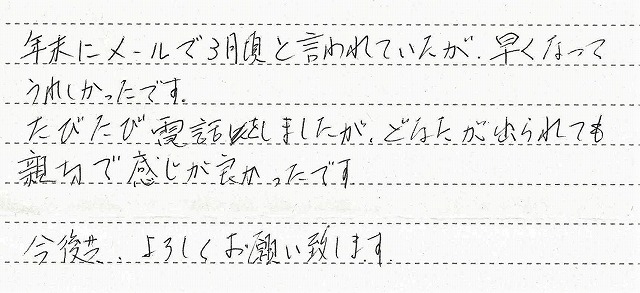 年末にメールで3月頃と言われていたが、早くなって
うれしかったです。
たびたび電話をしましたが、どなたが出られても
親切で感じが良かったです
今後共、よろしくお願い致します